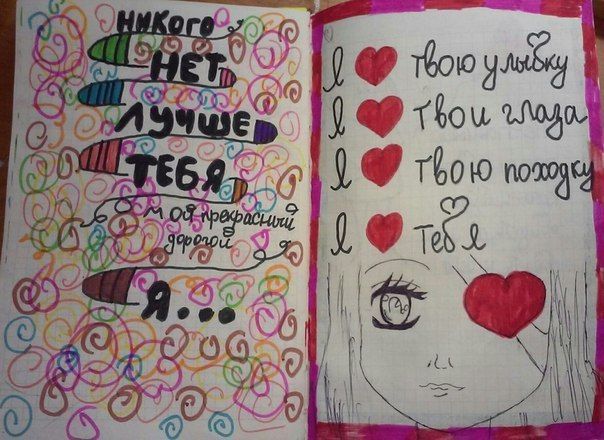 НИКОГО
НЕТ
ЛУЧШЕ
ТЕБЯ
мой прекрасный
дорогой
Я...
Я твою улыбку
Я твои глаза
Я твою походку
Я тебя